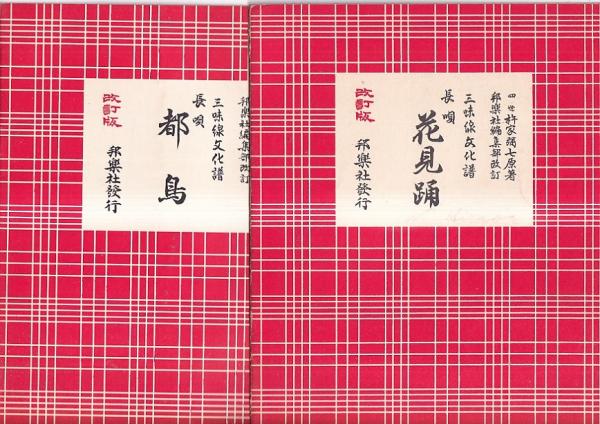 四世杵家彌七原著
邦樂社編集部改訂
三味線文化譜
長唄
花見踊
邦樂社發行
改訂版
邦樂社編集部改訂
三味線文化譜
長唄
都鳥
邦樂社發行
改訂版